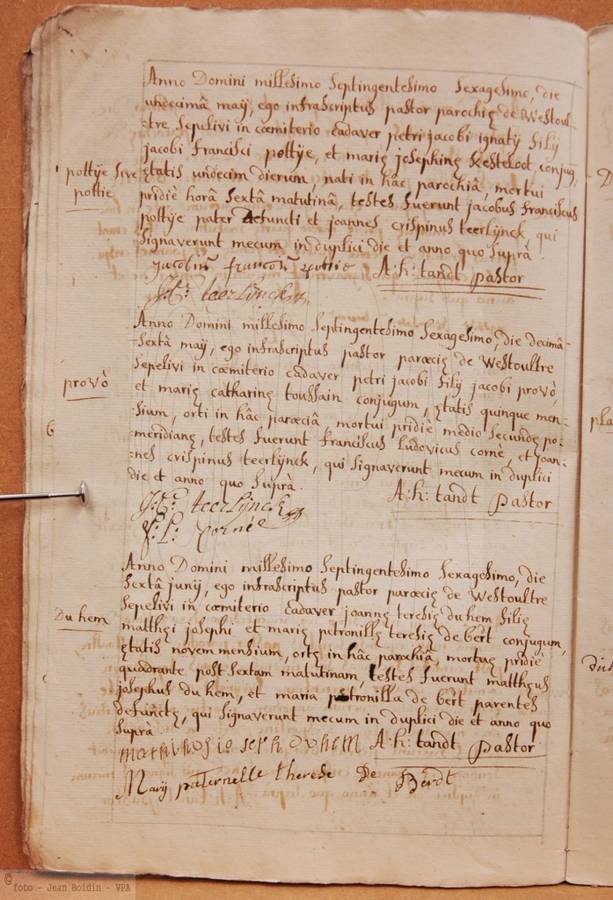 Anno Domini millesimo septingentesimo sexagesimo, die
undecimâ maÿ, ego infrascriptus pastor parochię de Westoul-
-tre sepelivi in cœmiterio cadaver petri jacobi ignatÿ filÿ
jacobi francisci pottÿe, et marię josephinę Kesteloot conjug,
pottÿe sive ętatis undecim dierum, nati in hâc parochiâ, mortui
pottie
pridiè horâ sextâ matutinâ, testes fuerunt jacobus franciscus
pottÿe pater defuncti et joannes crispinus teerlÿnck qui
signaverunt mecum in duplici die et anno quo suprà
jacobus francois pottie A: h: tandt pastor
J: C: teerlÿnck
Anno Domini millesimo septingentesimo sexagesimo, die decimâ
-sextâ maÿ, ego infrascriptus pastor parœcię de Westoultre
sepelivi in cœmiterio cadaver petri jacobi filÿ jacobi provò,
provò
et marię catharinę toussain conjugum, ętatis quinque men-
-sium, orti in hâc parœciâ mortui pridiè medio secundę po-
-meridianę, testes fuerunt franciscus ludovicus cornè, et joan-
-nes crispinus teerlÿnck, qui signaverunt mecum in duplici
die et anno quo suprà
A: h: tandt pastor
J: C: teerlÿnck
f: l: cornè
Anno Domini millesimo septingentesimo sexagesimo, die
sextâ junÿ, ego infrascriptus pastor parœcię de Westoultre
sepelivi in cœmiterio cadaver joannę teresię du hem filię
Du hem
matthęi josephi et marię petronillę teresię de bert conjugum,
ętatis novem mensium, ortę in hâc parochiâ, mortuę pridiè
quadrante post sextam matutinam, testes fuerunt matthęus
josephus du hem, et maria petronilla de bert parentes
defunctę, qui signaverunt mecum in duplici die et anno quo
suprà
mathihos ioseph duhem A: h: tandt pastor
Marÿ paternelle therese De Berdt
© foto - Jean Boidin - VPA